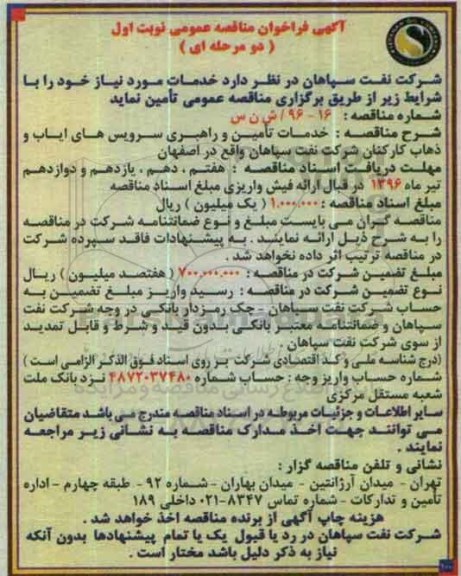 آگهی فراخوان مناقصه عمومی نوبت اول
( دو مرحله ای )
شرکت نفت سپاهان در نظر دارد خدمات مورد نیاز خود را با
شرایط زیر از طریق برگزاری مناقصه عمومی تأمین نماید
شماره مناقصه : ۱۶ - ۹۶ / ش ن س
شرح مناقصه : خدمات تأمین و راهبری سرویس های ایاب و
ذهاب کارکنان شرکت نفت سپاهان واقع در اصفهان
مهلت دریافت اسناد مناقصه : هفتم ، دهم ، یازدهم و دوازدهم
تیر ماه ۱۳۹۶ در قبال ارائه فیش واریزی مبلغ اسناد مناقصه
مبلغ اسناد مناقصه : ۱.۰۰۰.۰۰۰ ( یک میلیون ) ریال
مناقصه گران می بایست مبلغ و نوع ضمانتنامه شرکت در مناقصه
را به شرح ذیل ارائه نمایند . به پیشنهادات فاقد سپرده شرکت
در مناقصه ترتیب اثر داده نخواهد شد .
مبلغ تضمین شرکت در مناقصه : ۷۰۰.۰۰۰.۰۰۰ ( هفتصد میلیون ) ریال
نوع تضمین شرکت در مناقصه : رسید واریز مبلغ تضمین به
حساب شرکت نفت سپاهان - چک رمزدار بانکی در وجه شرکت نفت
سپاهان و ضمانتنامه معتبر بانکی بدون قید و شرط و قابل تمدید
از سوی شرکت نفت سپاهان .
(درج شناسه ملی و کد اقتصادی شرکت بر روی اسناد فوق الذکر الزامی است )
شماره حساب واریز وجه : حساب شماره ۴۸۷۲۰۳۷۴۸۰ نزد بانک ملت
شعبه مستقل مرکزی
سایر اطلاعات و جزئیات مربوطه در اسناد مناقصه مندرج می باشد متقاضیان
می توانند جهت اخذ مدارک مناقصه به نشانی زیر مراجعه
نمایند .
نشانی و تلفن مناقصه گزار :
تهران - میدان آرژانتین - میدان بهاران - شماره ۹۲ - طبقه چهارم - اداره
تأمین و تدارکات - شماره تماس ۸۳۴۷-۰۲۱ داخلی ۱۸۹
هزینه چاپ آگهی از برنده مناقصه اخذ خواهد شد .
شرکت نفت سپاهان در رد یا قبول یک یا تمام پیشنهادها بدون آنکه
نیاز به ذکر دلیل باشد مختار است .